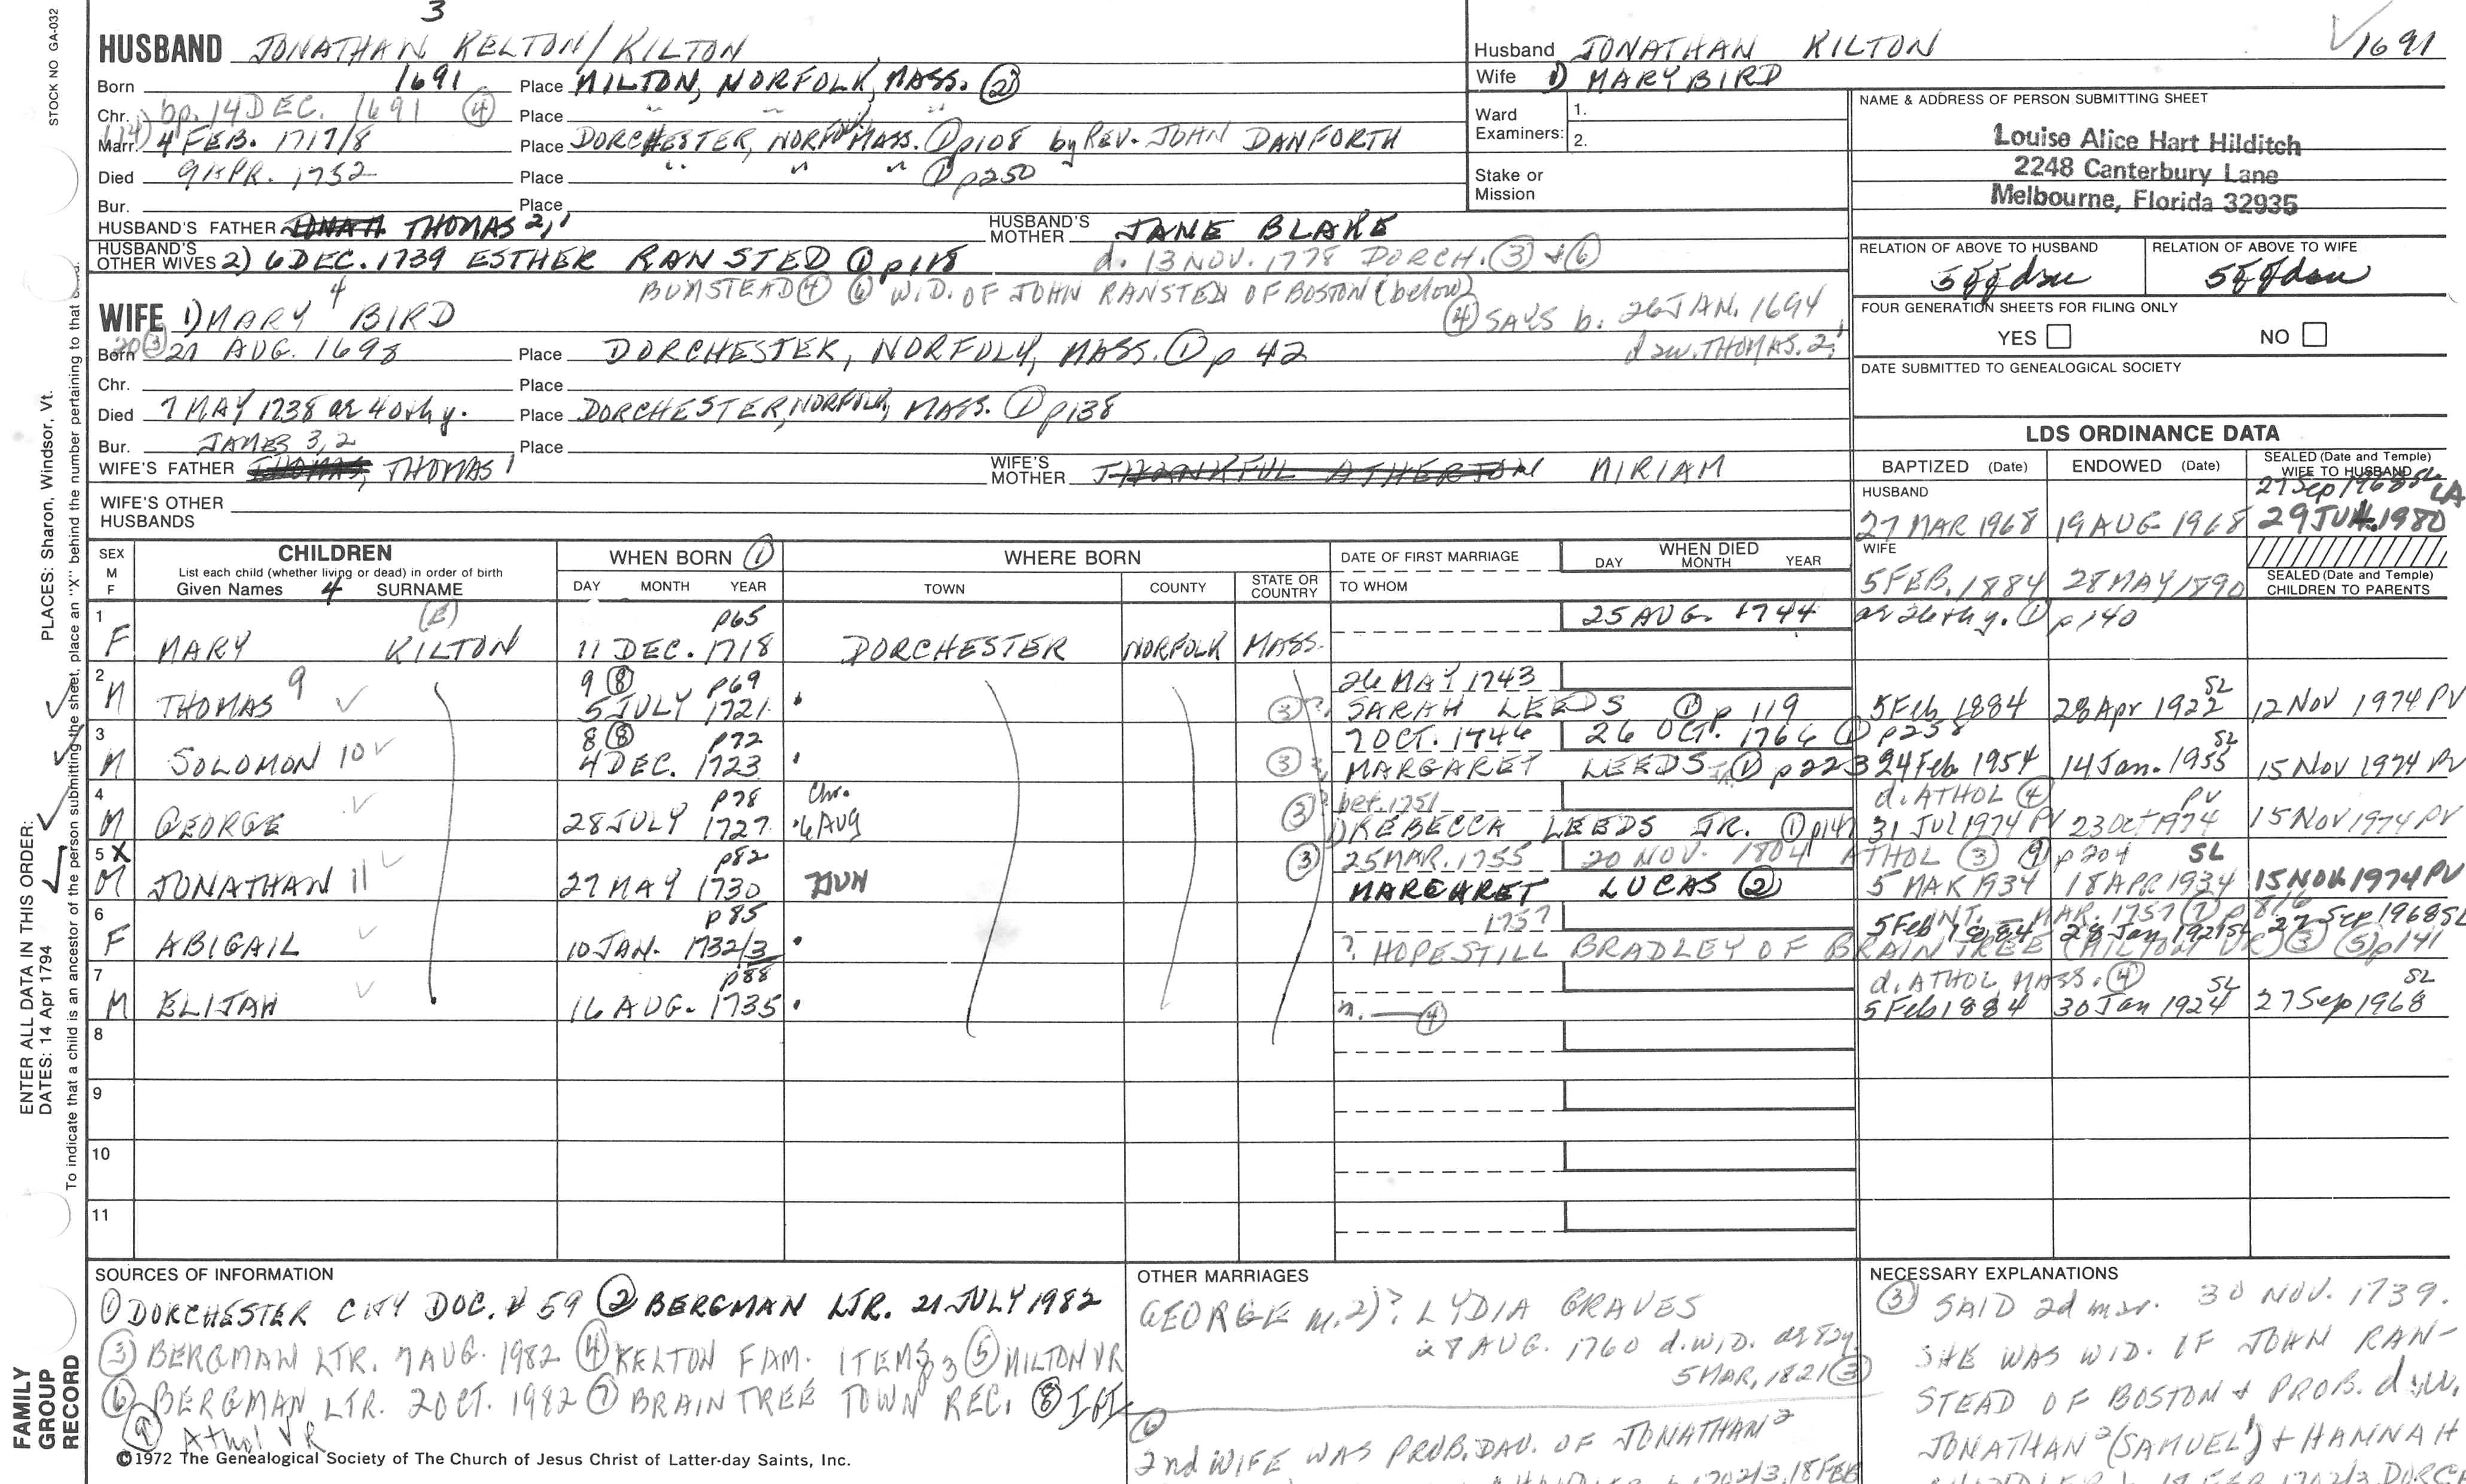 3
STOCK NO GA-032
HUSBAND JONATHAN KELTON/KILTON
Born 1691 Place MILTON, NORFOLK, MASS. ②
Chr. bp. 14 DEC. 1691 ④ Place " " "
(14)
Marr. 4 FEB. 1717/8 Place DORCHESTER, NORFOLK MASS. ① p108 by REV. JOHN DANFORTH
Died 9 APR. 1752 Place " " " ① p250
Bur. Place
HUSBAND'S FATHER JONATH THOMAS 2,1 HUSBAND'S MOTHER JANE BLAKE
HUSBAND'S OTHER WIVES 2) 6 DEC. 1739 ESTHER RANSTED ① p118 d. 13 NOV. 1778 DORCH. ③ + ⑥
BUMSTEAD ④ ⑥ WID. OF JOHN RANSTED OF BOSTON (below)
4
WIFE 1) MARY BIRD ④ SAYS b. 26 JAN. 1694
20 ③
Born 21 AUG. 1698 Place DORCHESTER, NORFOLK, MASS. ① p 42
d aw. THOMAS. 2,1
Chr. Place
Died 7 MAY 1738 ae 40thy. Place DORCHESTER, NORFOLK, MASS. ① p138
Bur. JAMES 3,2 Place
WIFE'S FATHER THOMAS, THOMAS 1 WIFE'S MOTHER THANKFUL ATHERTON MIRIAM
WIFE'S OTHER HUSBANDS
Husband JONATHAN KILTON √1691
Wife 1) MARY BIRD
Ward Examiners: 1.
2.
Stake or Mission
NAME & ADDRESS OF PERSON SUBMITTING SHEET
Louise Alice Hart Hilditch
2248 Canterbury Lane
Melbourne, Florida 32935
RELATION OF ABOVE TO HUSBAND RELATION OF ABOVE TO WIFE
FOUR GENERATION SHEETS FOR FILING ONLY
YES NO
DATE SUBMITTED TO GENEALOGICAL SOCIETY
LDS ORDINANCE DATA
BAPTIZED (Date) ENDOWED (Date) SEALED (Date and Temple) WIFE TO HUSBAND
27 Sep 1968 SL LA
HUSBAND
27 MAR 1968 19 AUG 1968 29 JUL 1980
WIFE
5 FEB. 1884 28 MAY 1890 SEALED (Date and Temple) CHILDREN TO PARENTS
SEX M F CHILDREN WHEN BORN ① WHERE BORN DATE OF FIRST MARRIAGE WHEN DIED
List each child (whether living or dead) in order of birth
Given Names 4 SURNAME DAY MONTH YEAR TOWN COUNTY STATE OR COUNTRY TO WHOM DAY MONTH YEAR
1 (E) p65 25 AUG. 1744 ae 26thy. ① p140
F MARY KILTON 11 DEC. 1718 DORCHESTER NORFOLK MASS.
2 9 ⑧ p69 26 MAY 1743 SL
M THOMAS 9 5 JULY 1721 ③ ? SARAH LEEDS ① p 119 5 Feb 1884 28 Apr 1922 12 Nov 1974 PV
3 8 ⑧ p72 7 OCT. 1746 26 OCT. 1766 ① p258 SL
M SOLOMON 10 4 DEC. 1723 ③ ? MARGARET LEEDS ① p223 24 Feb 1954 14 Jan. 1955 15 Nov 1974 PV
4 p78 Chr. ③ ? bef. 1751 d. ATHOL ④ PV
M GEORGE 28 JULY 1727 6 Aug 1) REBECCA LEEDS JR. ① p147 31 JUL 1974 PV 23 Oct 1974 15 Nov 1974 PV
5 X p82 ③ 25 MAR. 1755 20 NOV. 1804 ATHOL ③ ⑨ p204 SL
M JONATHAN 11 27 MAY 1730 JUN MARGARET LUCAS ② 5 MAR 1934 18 APR 1934 15 NOV 1974 PV
6 p85 1757 INT. MAR. 1757 ⑦ p 816
5 Feb 1884 28 Jan 1921 SL 27 Sep 1968 SL
F ABIGAIL 10 JAN. 1732/3 ? HOPESTILL BRADLEY OF BRAINTREE (MILTON VR) ③ ⑤ p141
7 p88 d. ATHOL MASS. ④ SL SL
M ELIJAH 16 AUG. 1735 n. — ④ 5 Feb 1884 30 Jan 1924 27 Sep 1968
8
9
10
11
SOURCES OF INFORMATION
① DORCHESTER CITY DOC. # 59 ② BERGMAN LTR. 21 JULY 1982
③ BERGMAN LTR. 7 AUG. 1982 ④ KELTON FAM. ITEMS p3 ⑤ MILTON VR
⑥ BERGMAN LTR. 2 OCT. 1982 ⑦ BRAINTREE TOWN REC. ⑧ IGI
⑨ Athol VR
©1972 The Genealogical Society of The Church of Jesus Christ of Latter-day Saints, Inc.
OTHER MARRIAGES
GEORGE m. 2)? LYDIA GRAVES
28 AUG. 1760 d. WID. ae 87y.
5 MAR. 1821 ③
⑥
2nd WIFE WAS PROB. DAU. OF JONATHAN 2
1702/3, 18 FEB
NECESSARY EXPLANATIONS
③ SAID 2d mar. 30 NOV. 1739.
SHE WAS WID. OF JOHN RAN-
STEAD OF BOSTON & PROB. daw.
JONATHAN 2 (SAMUEL 1) & HANNAH
18 FEB 1702/3 DORCH
ENTER ALL DATA IN THIS ORDER:
PLACES: Sharon, Windsor, Vt.
DATES: 14 Apr 1794
To indicate that a child is an ancestor of the person submitting the sheet, place an "X" behind the number pertaining to that
FAMILY GROUP RECORD